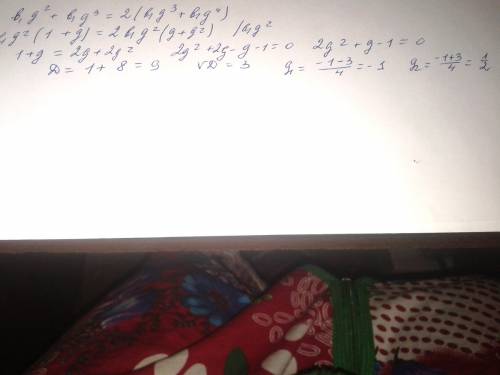 b₁g² + b₁g³ = 2(b₁g³ + b₁g⁴)
b₁g²(1 + g) = 2b₁g²(g + g²) /b₁g²
1 + g = 2g + 2g² 2g² + 2g - g - 1 = 0 2g² + g - 1 = 0
D = 1 + 8 = 9 √D = 3 g₁ = (-1-3)/4 = -1 g₂ = (-1+3)/4 = 1/2